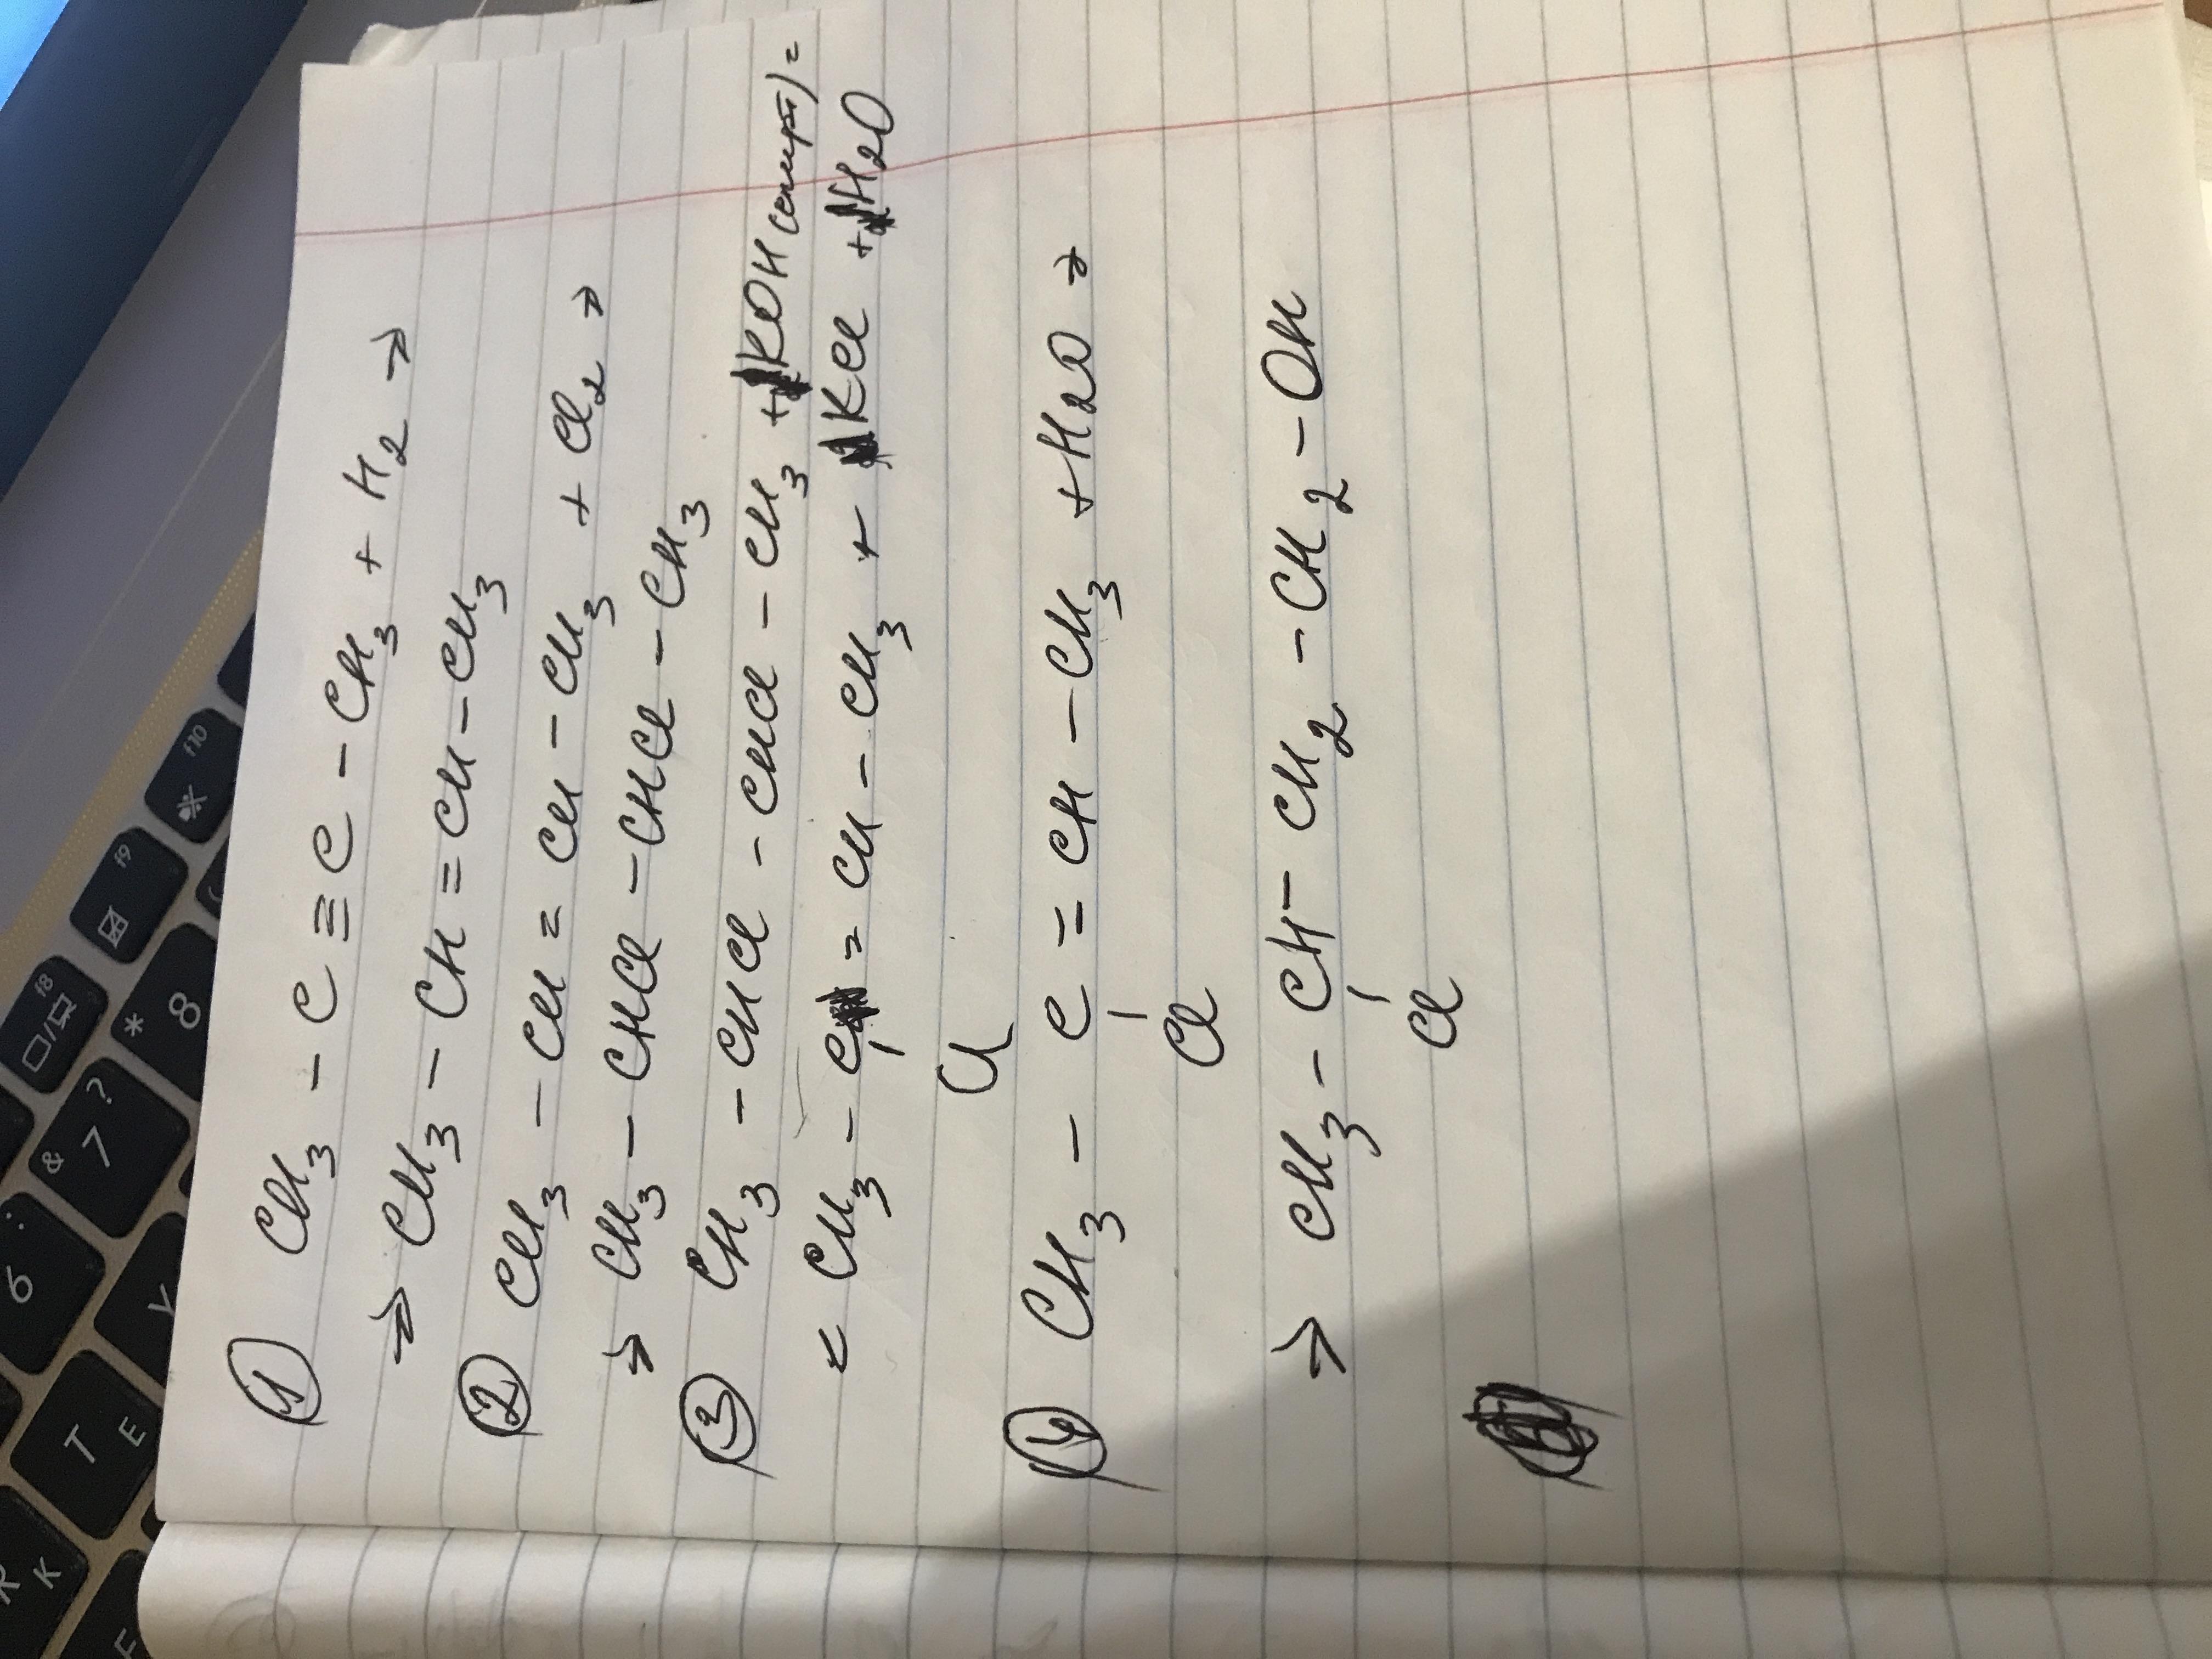 ① CH₃ - C ≡ C - CH₃ + H₂ →
→ CH₃ - CH = CH - CH₃
② CH₃ - CH = CH - CH₃ + Cl₂ →
→ CH₃ - CHCl - CHCl - CH₃
③ CH₃ - CHCl - CHCl - CH₃ + KOH (спирт) =
= CH₃ - C = CH - CH₃ + KCl + H₂O
Cl
④ CH₃ - C = CH - CH₃ + H₂O →
Cl
→ CH₃ - CH - CH₂ - CH₂ - OH
Cl
f8
f9
f10
* 8
& 7 ?
6 :
T E
K